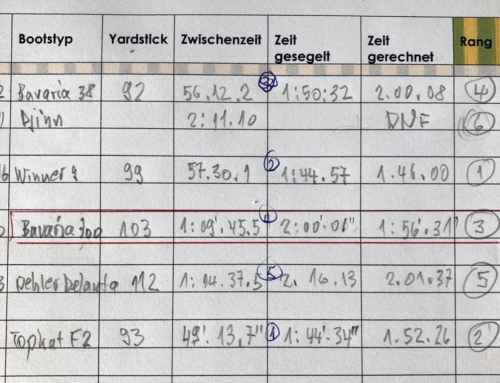 Bootstyp Yardstick Zwischenzeit Zeit gesegelt Zeit gerechnet Rang
2 Bavaria 38 92 56.12.2 3 1:50:32 2.00.08 4
Djinn 2:11.10 DNF 6
6 Winner 9 99 57.30.1 2 1:44.57 1.46.00 1
Bavaria 700 103 1:09'.45.5 4 2:00'.01" 1:56'.31" 3
3 Dehler Delanta 112 1:14.37.5 5 2.16.13 2.01.37 5
Topkat F2 93 49'.13,7" 1 1:44'.34" 1.52.26 2